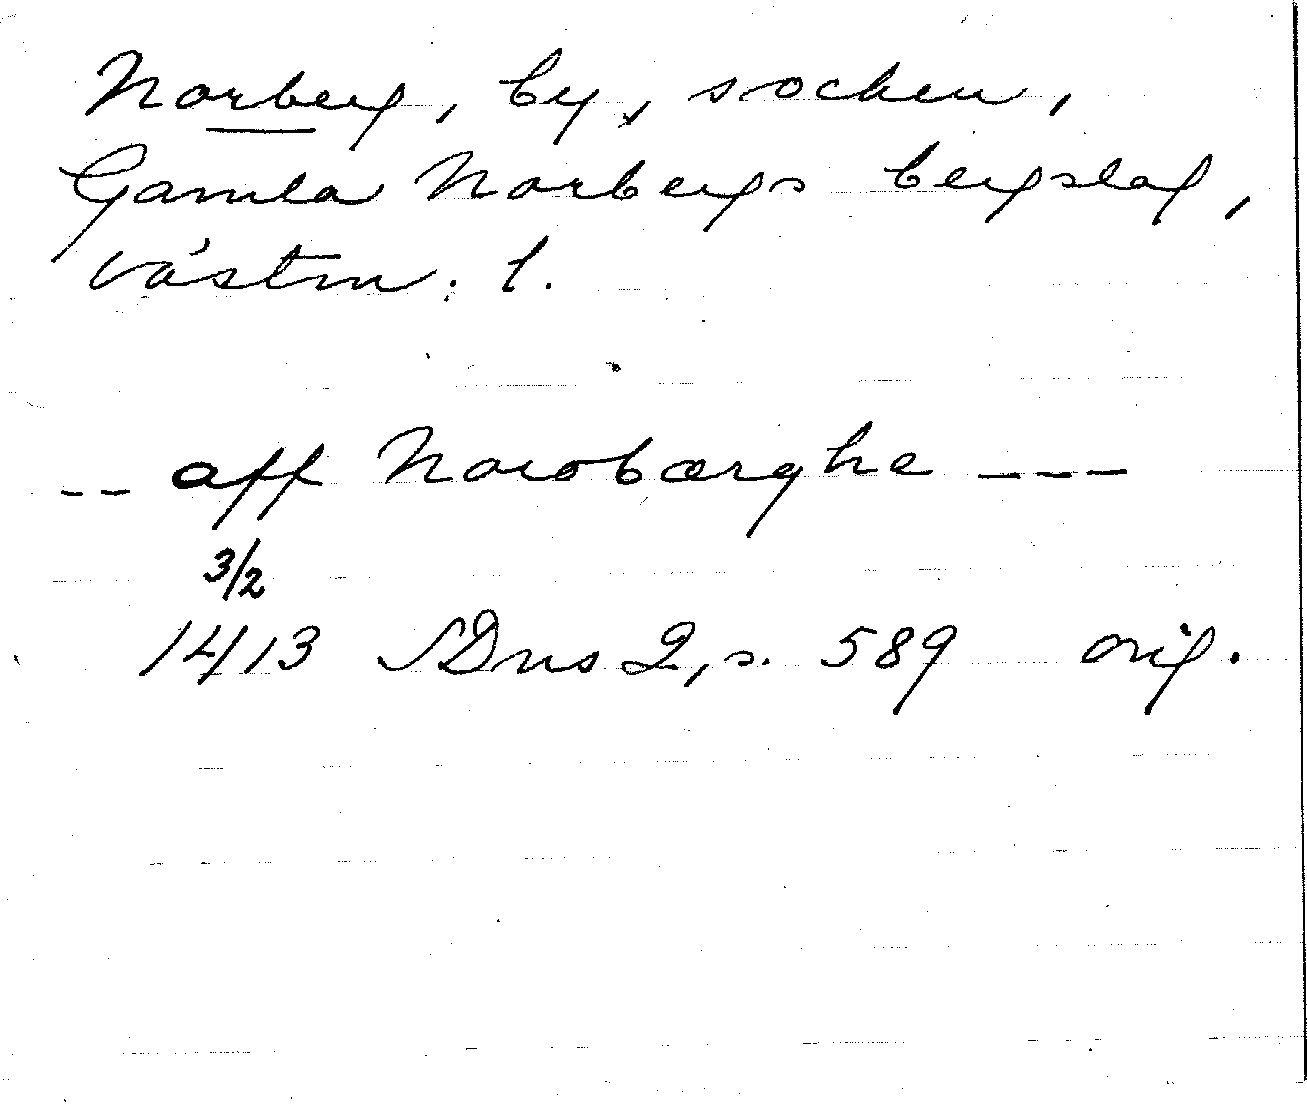 Norberg, by, socken,
Gamla Norbergs bergslag,
Västm. l.
-- aff Norobærghe ---
3/2
1413 SDns 2, s. 589 orig.